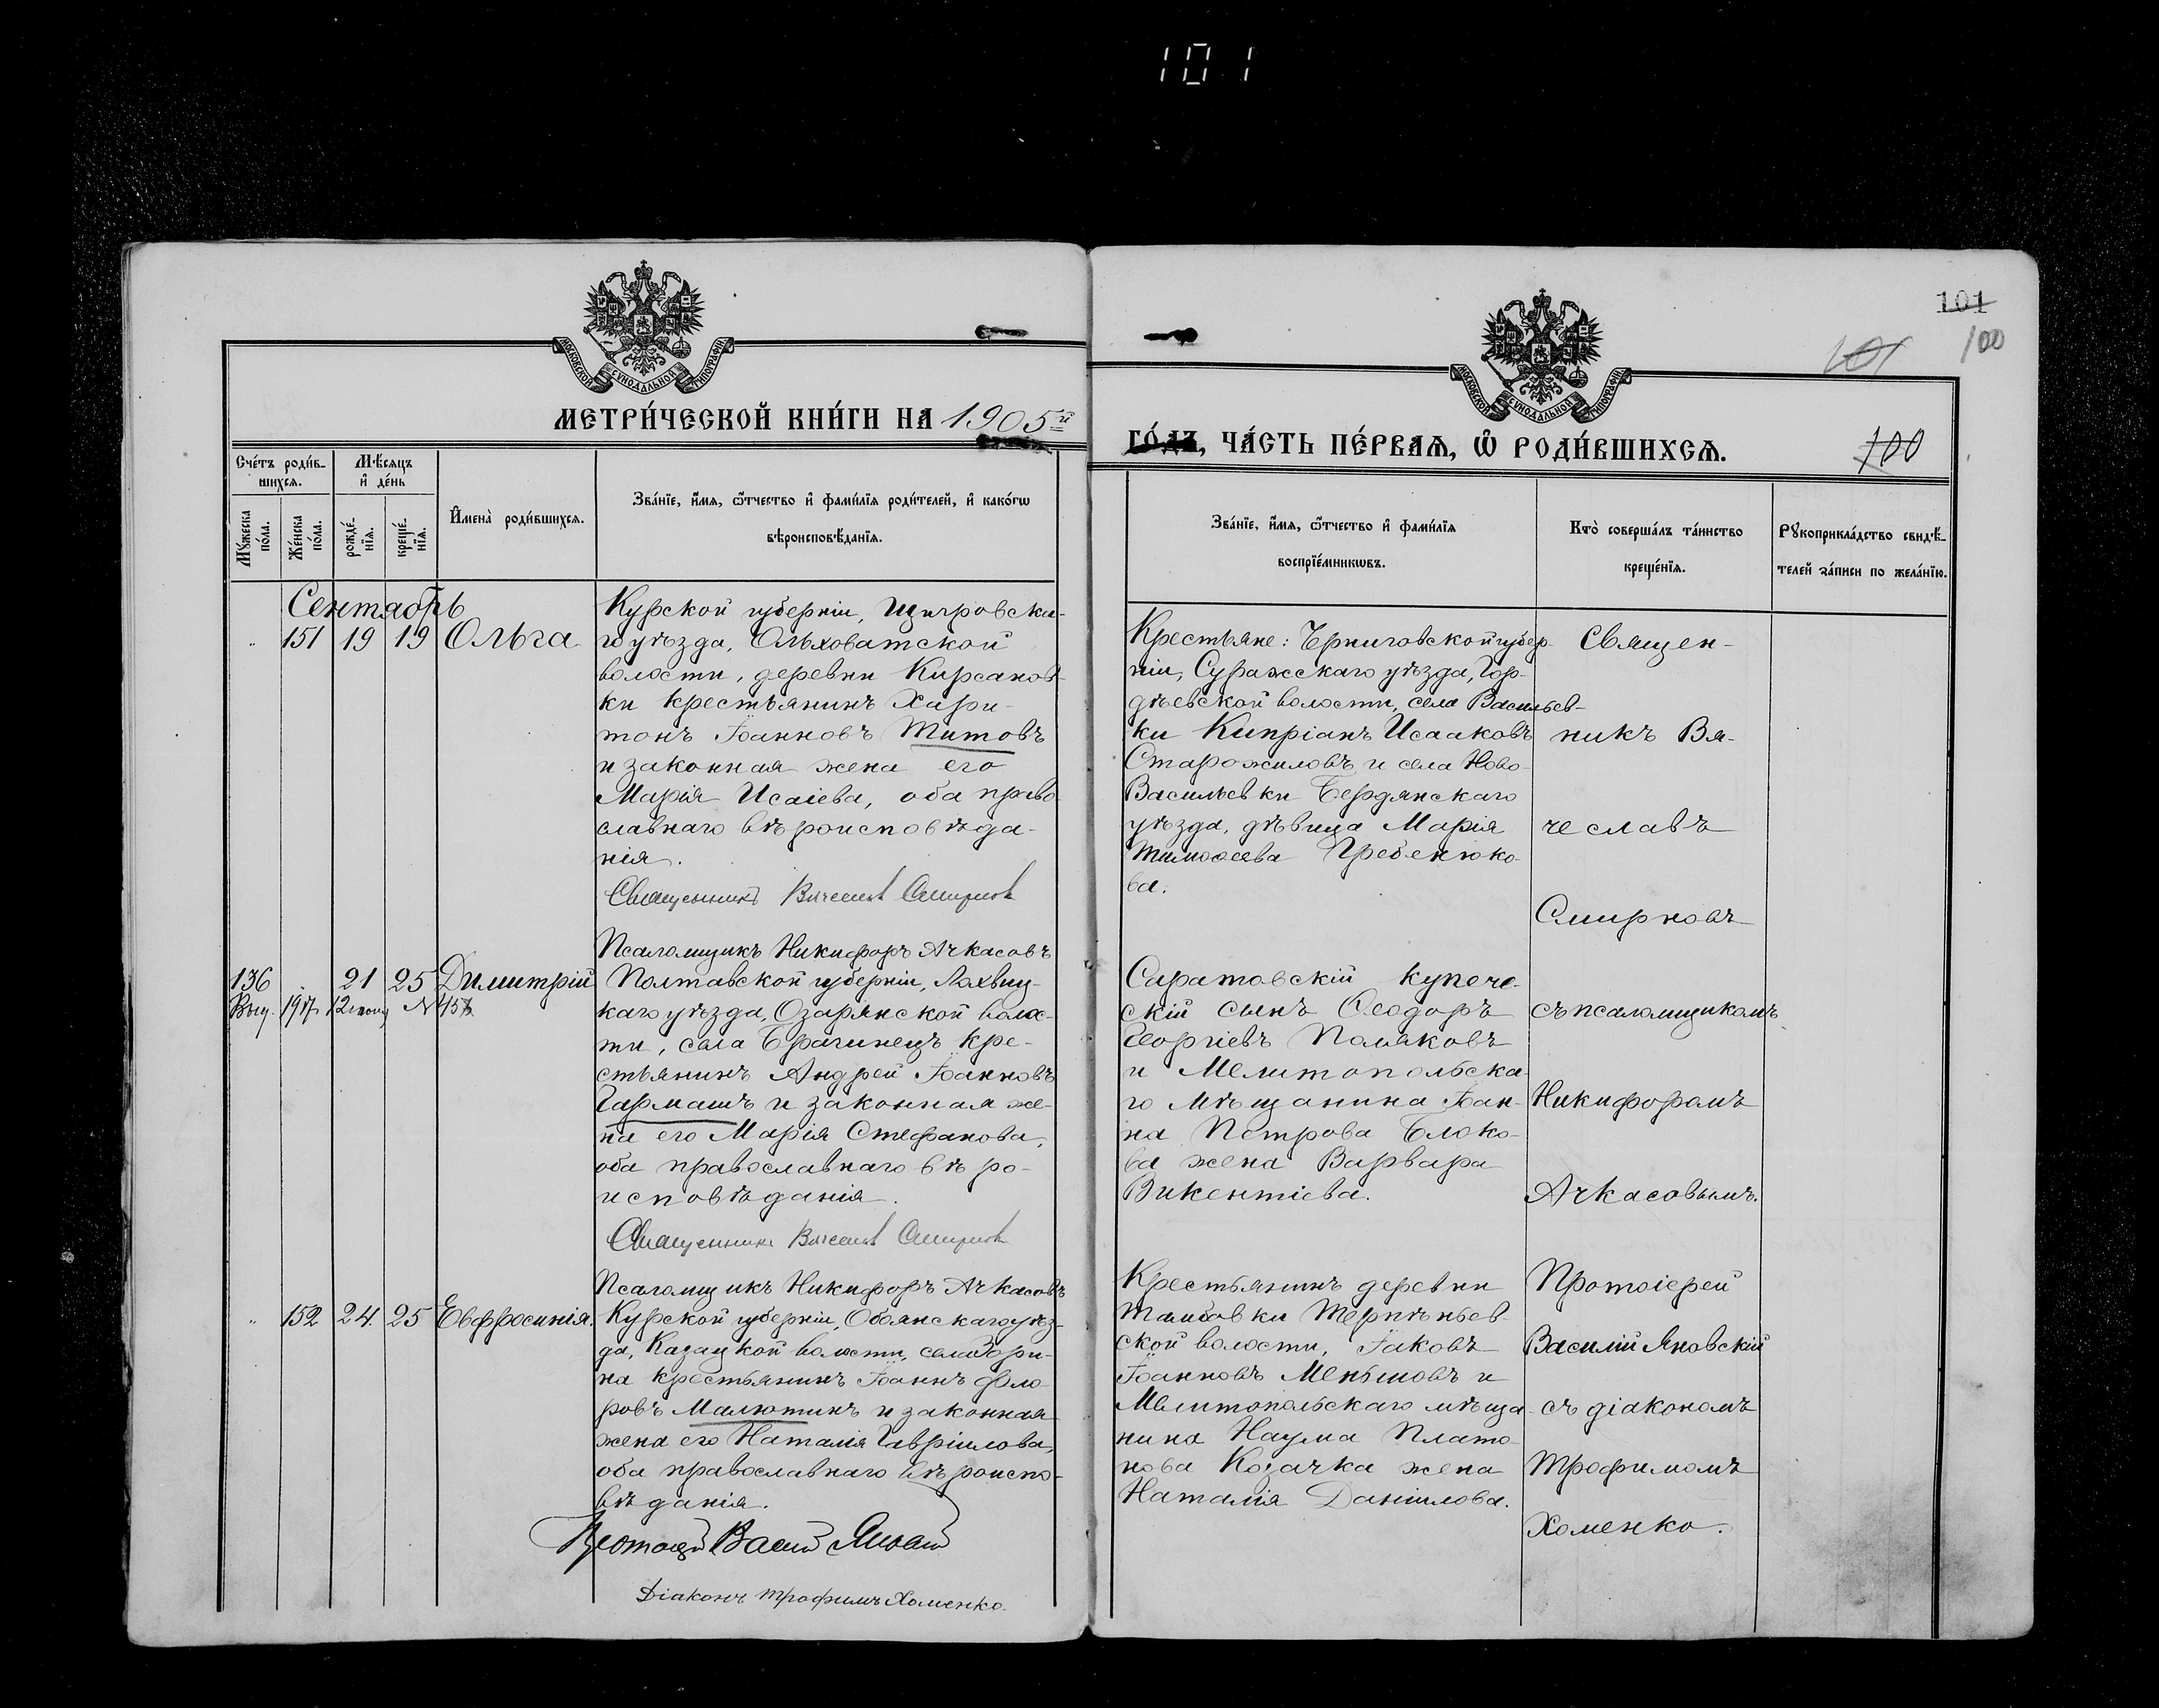 101
101
101
100
МОСКОВСКОЙ СѴНОДАЛЬНОЙ ТИПОГРАФІИ
МОСКОВСКОЙ СѴНОДАЛЬНОЙ ТИПОГРАФІИ
МЕТРИ́ЧЕСКОЙ КНИ́ГИ НА 1905й
ГО́ДЪ, ЧА́СТЬ ПЕ́РВАѦ, Ѽ РОДИ́ВШИХСѦ.
100
Сче́тъ роди́в-
шихсѧ.
Мѣ́сѧцъ
и҆ де́нь
Мꙋ́жеска
по́ла.
Же́нска
по́ла.
рожде́-
нїѧ.
креще́-
нїѧ.
И҆мена̀ роди́вшихсѧ.
Зва́нїе, и҆́мѧ, ѻ҆́тчество и҆ фами́лїѧ роди́телей, и҆ како́гѡ
вѣроисповѣ́данїѧ.
Зва́нїе, и҆́мѧ, ѻ҆́тчество и҆ фами́лїѧ
воспрїе́мникѡвъ.
Кто̀ соверша́лъ та́инство
креще́нїѧ.
Рꙋкоприкла́дство свидѣ́-
телей за́писи по жела́нїю.
Сентябрь
" 151 19 19 Ольга
Курской губерніи, Щигровска-
го уѣзда, Ольховатской
волости, деревни Кирсанов-
ки крестьянинъ Хари-
тонъ Іоанновъ Титовъ
и законная жена его
Марія Исаіева, оба право-
славнаго вѣроисповѣда-
нія.
Священникъ Вячеслав Смирнов
Псаломщикъ Никифоръ Ачкасовъ
Крестьяне: Черниговской губер-
ніи, Суражскаго уѣзда, Гор-
дѣевской волости, села Васильев-
ки Кипріанъ Исааковъ
Старожиловъ и села Ново-
Васильевки Бердянскаго
уѣзда, дѣвица Марія
Тимоѳеева Гребенюко-
ва.
Священ-
никъ Вя-
чеславъ
Смирновъ
136 21 25 Димитрій
Выд. 1917 12 іюня N 45
Полтавской губерніи, Лохвиц-
каго уѣзда, Озарянской волос-
ти, села Брагинецъ кре-
стьянинъ Андрей Іоанновъ
Гармашъ и законная же-
на его Марія Стефанова,
оба православнаго вѣро-
исповѣданія.
Священник Вячеслав Смирнов
Псаломщикъ Никифоръ Ачкасовъ
Саратовскій купече-
скій сынъ Ѳеодоръ
Георгіевъ Поляковъ
и Мелитопольска-
го мѣщанина Іоан-
на Петрова Блоко-
ва жена Варвара
Викентіева.
съ псаломщикомъ
Никифоромъ
Ачкасовымъ.
" 152 24 25 Евфросинія.
Курской губерніи, Обоянскаго уѣз-
да, Казацкой волости, села Зори-
на крестьянинъ Іоаннъ Фло-
ровъ Малютинъ и законная
жена его Наталія Гавріилова,
оба православнаго вѣроиспо-
вѣданія.
Протоіерей Василій Яновскій
Діаконъ Трофимъ Хоменко.
Крестьянинъ деревни
Тамбовки Терпѣньев-
ской волости, Іаковъ
Іоанновъ Меньшовъ и
Мелитопольскаго мѣща-
нина Наума Плато-
нова Козачка жена
Наталія Даніилова.
Протоіерей
Василій Яновскій
съ діакономъ
Трофимомъ
Хоменко.